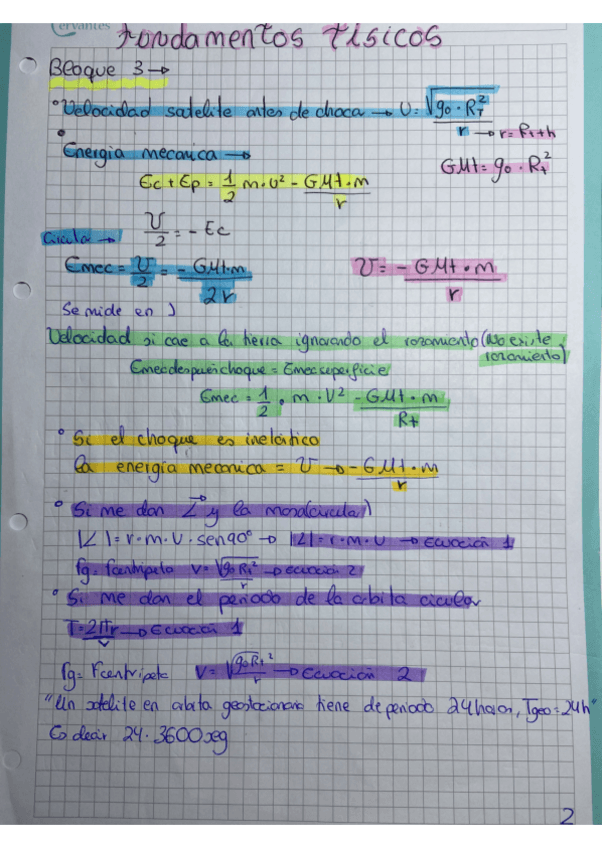 Cervantes
Fundamentos Físicos
Bloque 3 →
° Velocidad satelite antes de choca → v = √(g0 · R_T^2 / r) → r = Rt + h
° Energia mecanica →
GMt = g0 · Rt^2
Ec + Ep = 1/2 m · v^2 - GMt · m / r
Circular → U/2 = - Ec
Emec = U/2 = - GMt · m / 2r
U = - GMt · m / r
Se mide en J
Velocidad si cae a la tierra ignorando el rozamiento (No existe rozamiento)
Emecdespueschoque = Emecsuperficie
Emec = 1/2 · m · v^2 - GMt · m / Rt
° Si el choque es inelástico
la energia mecanica = U → - GMt · m / r
° Si me dan L→ y la masa (circular)
|L| = r · m · v · sen90° → |L| = r · m · v → Ecuación 1
Fg = Fcentripeta v = √(g0 Rt^2 / r) → Ecuación 2
° Si me dan el periodo de la orbita circular
T = 2πr / v → Ecuación 1
Fg = Fcentripeta v = √(g0 Rt^2 / r) → Ecuación 2
"Un satelite en orbita geostacionaria tiene de periodo 24horas, Tgeo = 24h"
Es decir 24 · 3600seg
2